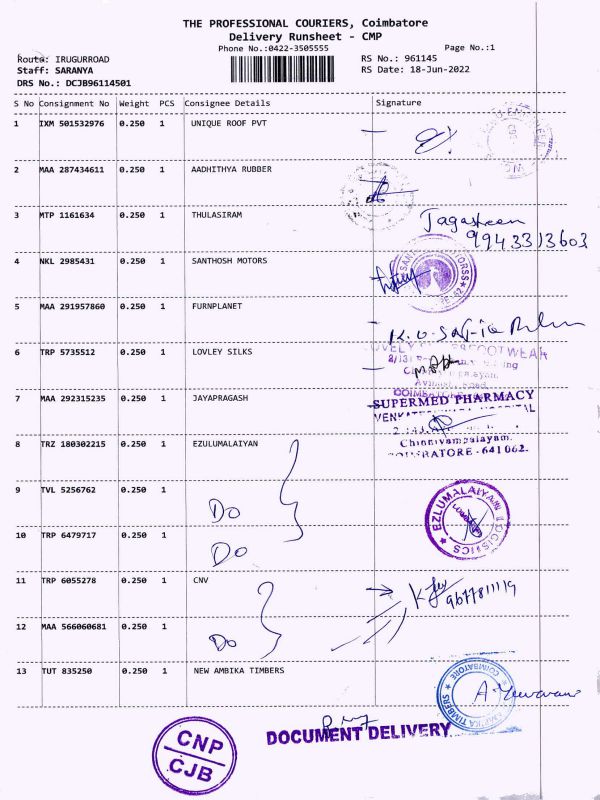 THE PROFESSIONAL COURIERS, Coimbatore
Delivery Runsheet - CMP
Phone No.:0422-3505555
Page No.:1
Route: IRUGURROAD
RS No.: 961145
Staff: SARANYA
RS Date: 18-Jun-2022
DRS No.: DCJB96114501
S No Consignment No Weight PCS Consignee Details Signature
1 IXM 501532976 0.250 1 UNIQUE ROOF PVT
2 MAA 287434611 0.250 1 AADHITHYA RUBBER
3 MTP 1161634 0.250 1 THULASIRAM
9943313603
4 NKL 2985431 0.250 1 SANTHOSH MOTORS
5 MAA 291957860 0.250 1 FURNPLANET
6 TRP 5735512 0.250 1 LOVLEY SILKS
FOOTWEAR
7 MAA 292315235 0.250 1 JAYAPRAGASH
SUPERMED PHARMACY
HOSPITAL
Chinnivampalayam.
COIMBATORE - 641 062.
8 TRZ 180302215 0.250 1 EZULUMALAIYAN
9 TVL 5256762 0.250 1
Do
EZLUMALAIYAN LOGISTICS
10 TRP 6479717 0.250 1
Do
11 TRP 6055278 0.250 1 CNV
9677811119
12 MAA 566060681 0.250 1
Do
13 TUT 835250 0.250 1 NEW AMBIKA TIMBERS
COIMBATORE
DOCUMENT DELIVERY
CNP
CJB